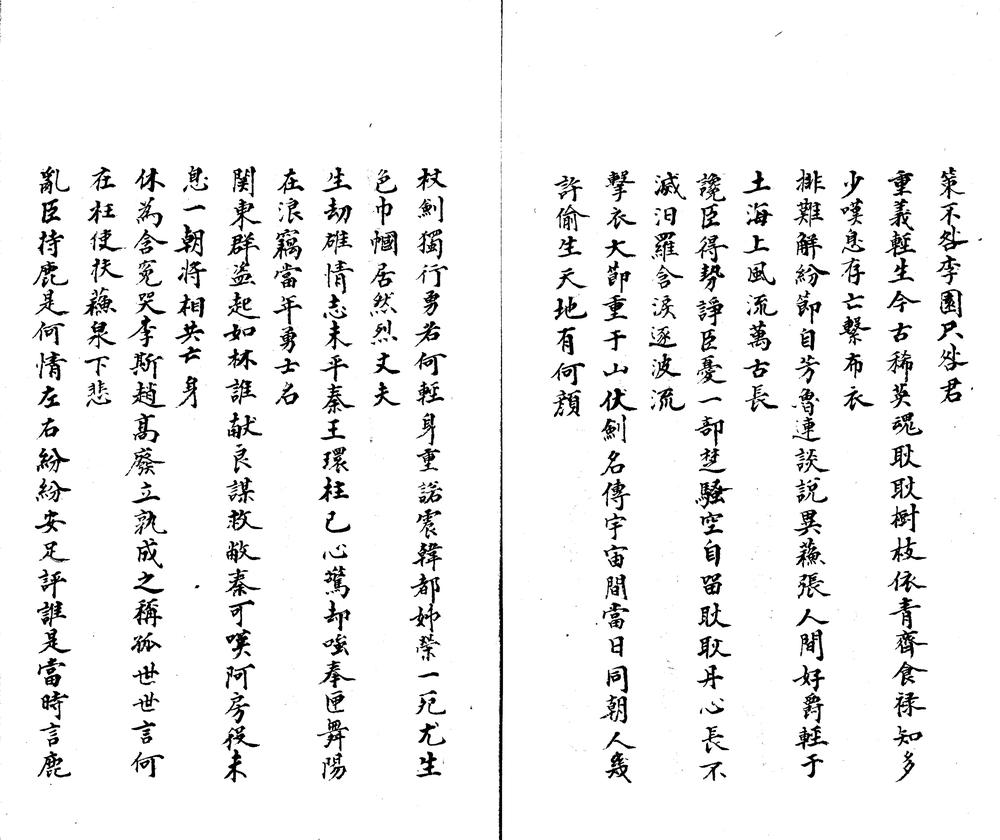 策不咎李園只咎君
重義輕生今古稀英魂耿耿樹枝依青齊食祿知多
少嘆息存亡繫布衣
排難解紛節自芳魯連談說異蘓張人間好爵輕于
土海上風流萬古長
讒臣得勢諍臣憂一部楚騷空自留耿耿丹心長不
滅汨羅含淚逐波流
擊衣大節重于山伏劍名傳宇宙間當日同朝人幾
許偷生天地有何顏
杖劍獨行勇若何輕身重諾震韓都姊榮一死尤生
色巾幗居然烈丈夫
生劫雄情志未平秦王環柱已心驚却嗤奉匣舞陽
在浪竊當年勇士名
関東群盜起如林誰献良謀救敝秦可嘆阿房役未
息一朝将相共亡身
休為含冤哭李斯趙高廢立孰成之稱孤世世言何
在枉使扶蘓泉下悲
亂臣持鹿是何情左右紛紛安足評誰是當時言鹿